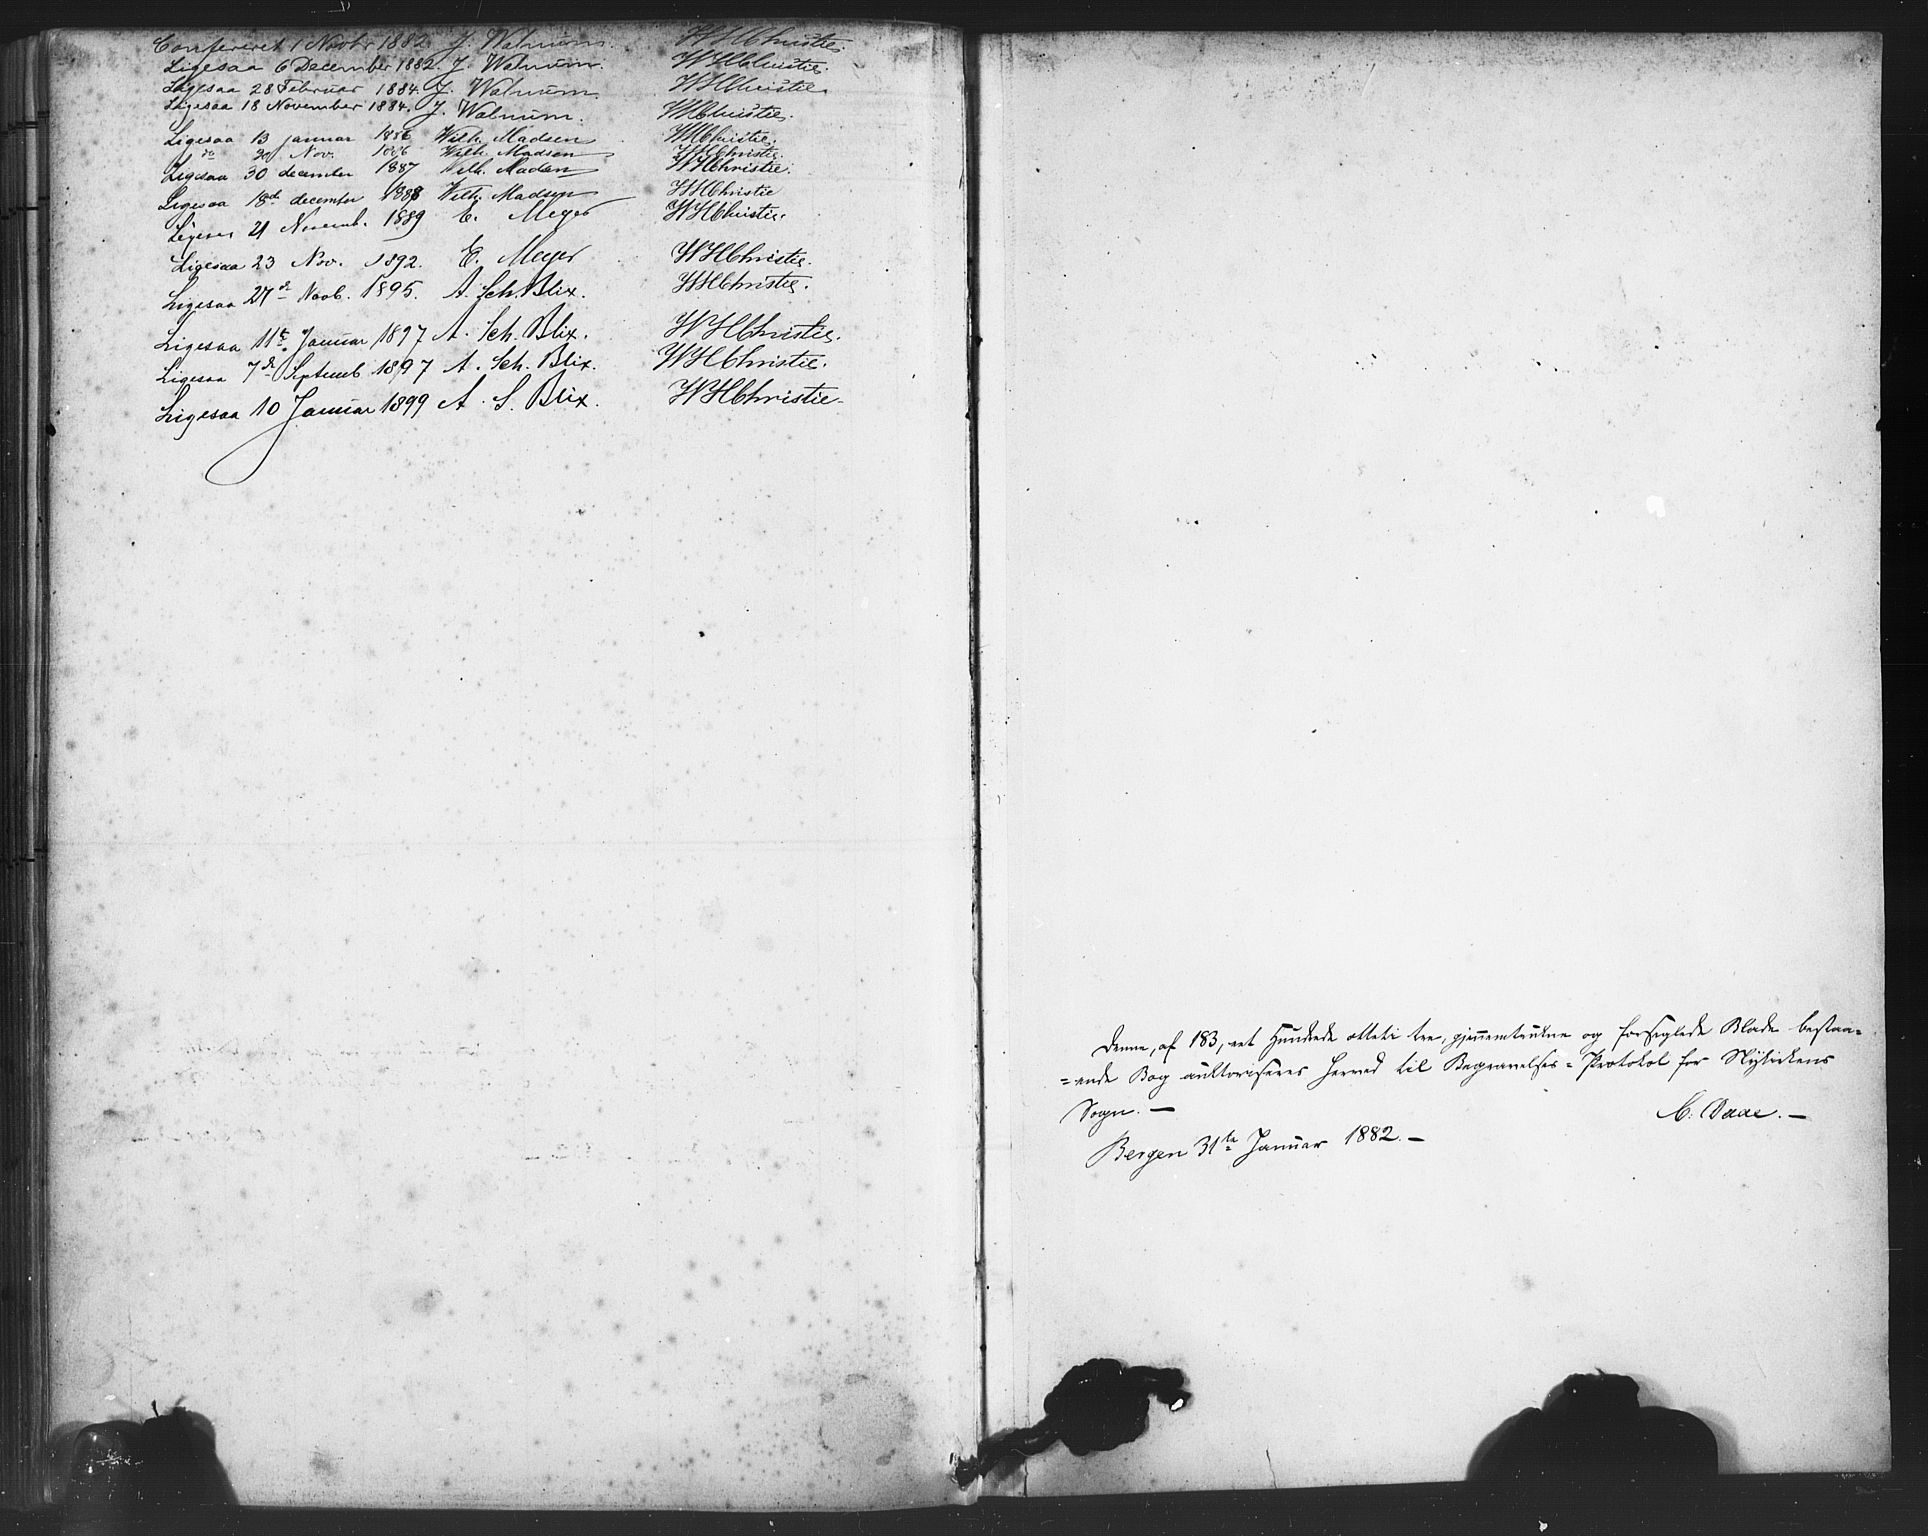 Confereret 1 Novbr 1882 J. Walnum. WHChristie.
Ligesaa 6 December 1882. J. Walnum. WHChristie.
Ligesaa 28 Februar 1884. J. Walnum. WHChristie.
Ligesaa 18 November 1884. J. Walnum. WHChristie.
Ligesaa 13 januar 1886 Wilh. Madsen WHChristie.
do 30 Nov. 1886 Wilh. Madsen WHChristie.
Ligesaa 30 december 1887 Wilh. Madsen WHChristie.
Ligesaa 18de december 1888 Wilh. Madsen WHChristie
Ligesaa 21 Novemb. 1889 E. Meyer WHChristie.
Ligesaa 23 Nov. 1892. E. Meyer WHChristie.
Ligesaa 27de Novb. 1895. A. Sch. Blix. WHChristie.
Ligesaa 11te Januar 1897 A. Sch. Blix. WHChristie.
Ligesaa 7de Septemb 1897 A. Sch. Blix. WHChristie.
Ligesaa 10 Januar 1899 A. S. Blix. WHChristie
Denne, af 183, et Hundrede otteti tre, gjennemtrukne og forseglede Blade bestaa=
=ende Bog auktoriseres herved til Begravelses=Protokol for Nykirkens
Sogn. —
C. Daae. —
Bergen 31te Januar 1882. —